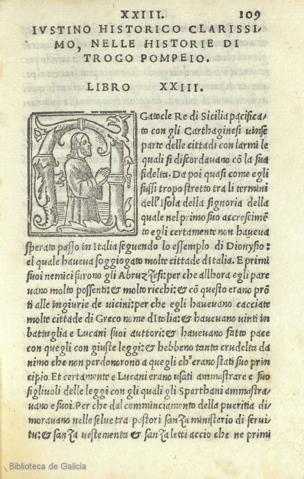 XXIII. 109
IVSTINO HISTORICO CLARISSI-
MO, NELLE HISTORIE DI
TROGO POMPEIO.
LIBRO XXIII.
A Gatocle Re di Sicilia pacifica-
to con gli Carthaginesi uinse
parte delle cittadi con larmi le
quali si discordauano cō la sua
fidelta. Da poi quasi come egli
fussi tropo stretto tra li termini
dell'Isola della signoria della
quale nel primo suo accrescimē
to egli certamente non haueua
sperato passo in Italia seguendo lo essempio di Dionysio:
el quale haueua soggiogato molte cittade di italia. E primi
suoi nemici furono gli Abruzzesi: per che allhora egli pare
uano molto possenti: & molto ricchi: & cō questo erano prō
ti alle ingiurie de uicini: per che egli haueuano cacciate
molte cittade di Greco nome d'Italia: & haueuano uinti in
battaglia e Lucani suoi auttori: & haueuano fatto pace
con quegli con giuste leggi: & hebbeno tanta crudelta da
nimo che non perdonorono a quegli ch'erano stati suo prin
cipio. Et certamente e Lucani erano usati ammaestrare e suo
figliuoli delle leggi con gli quali gli Sparthani ammaestra
uano e suoi. Per che dal comminciamento della pueritia di
morauano nelle selue tra pastori sanza ministerio di serui
tu: & sanza uestementa & sanza letti accio che ne primi
Biblioteca de Galicia